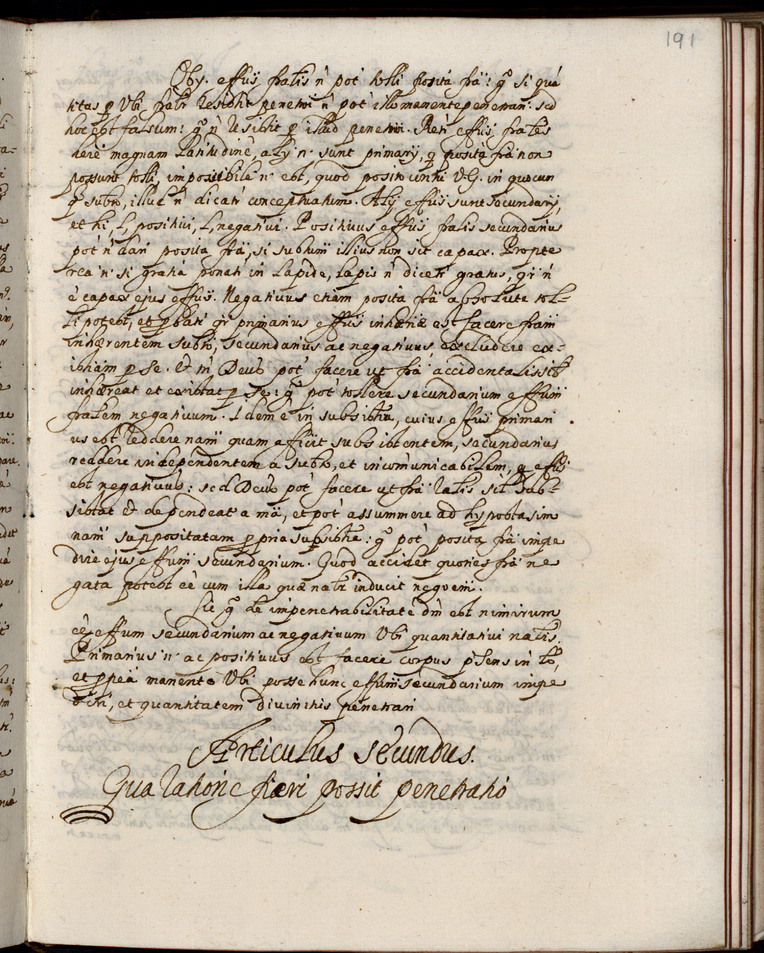 191
Obij. effūs fralis ñ pot tolli posita frā: g° si quā
titas p Vbi fratr resistit penetrōi ñ pot illo manente penetrari: sed
hoc est falsum: g° ñ resistit p illud penetrōi. Resp. effūs frales
here magnam latitudinē, alij n. sunt primarij, q posita frā non
possunt tolli, impossibile n. est, quod posito cinthi V.G. in quocun
q subto, illud ñ dicatr conceptuatum. Alij effūs sunt secundarij,
et hi, l, positivi, l, negativi. Positivus effūs fralis secundarius
pot ñ dari posita frā, si subtum illius non sit capax. Propte
rea n. si gratia ponatr in lapide, lapis ñ dicetr gratus, qr ñ
ē capax ejus effūs. Negativus etiam posita frā absolute tol-
li potest, et pbatr qr primarius effūs inhærīæ est facere fram
inhærentem subto, secundarius ac negativus excludere ex-
istiam p se. Et ñ Deus pot facere ut frā accidentalis sit
inhæreat et existat p se: g° pot tollere secundarium effum
fralem negativum. Idem ē in subsistīa, cuius effūs primari
us est reddere nam quam afficit subsistentem, secundarius
reddere independentem a subto, et incommunicabilem, q effūs
est negativus: sed Deus pot facere ut frā talis sit sub-
sistat et dependeat a mā, et pot assummere ad hypostasim
nam suppositatam ppria subsistīa: g° pot posita frā impe
dire ejus effum secundarium. Quod accidet quoties frā ne
gata potest eē cum illa quæ natr inducit negoem.
Sic g° de impenetrabilitate dm est nimirum
eē effum secundarium ac negativum Vbi quantitativi natis.
Primarius n. ac positivus est facere corpus psens in lo,
et pptea manente Vbi posse hunc effum secundarium impe
diri, et quantitatem divinitus penetrari
Articulus secundus.
Qua ratione fieri possit penetratio